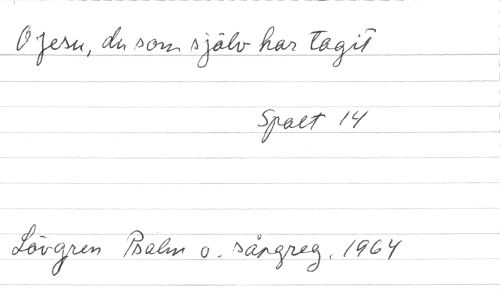 O Jesu, du som själv har tagit
Spalt 14
Lövgren Psalm o. sångreg. 1964